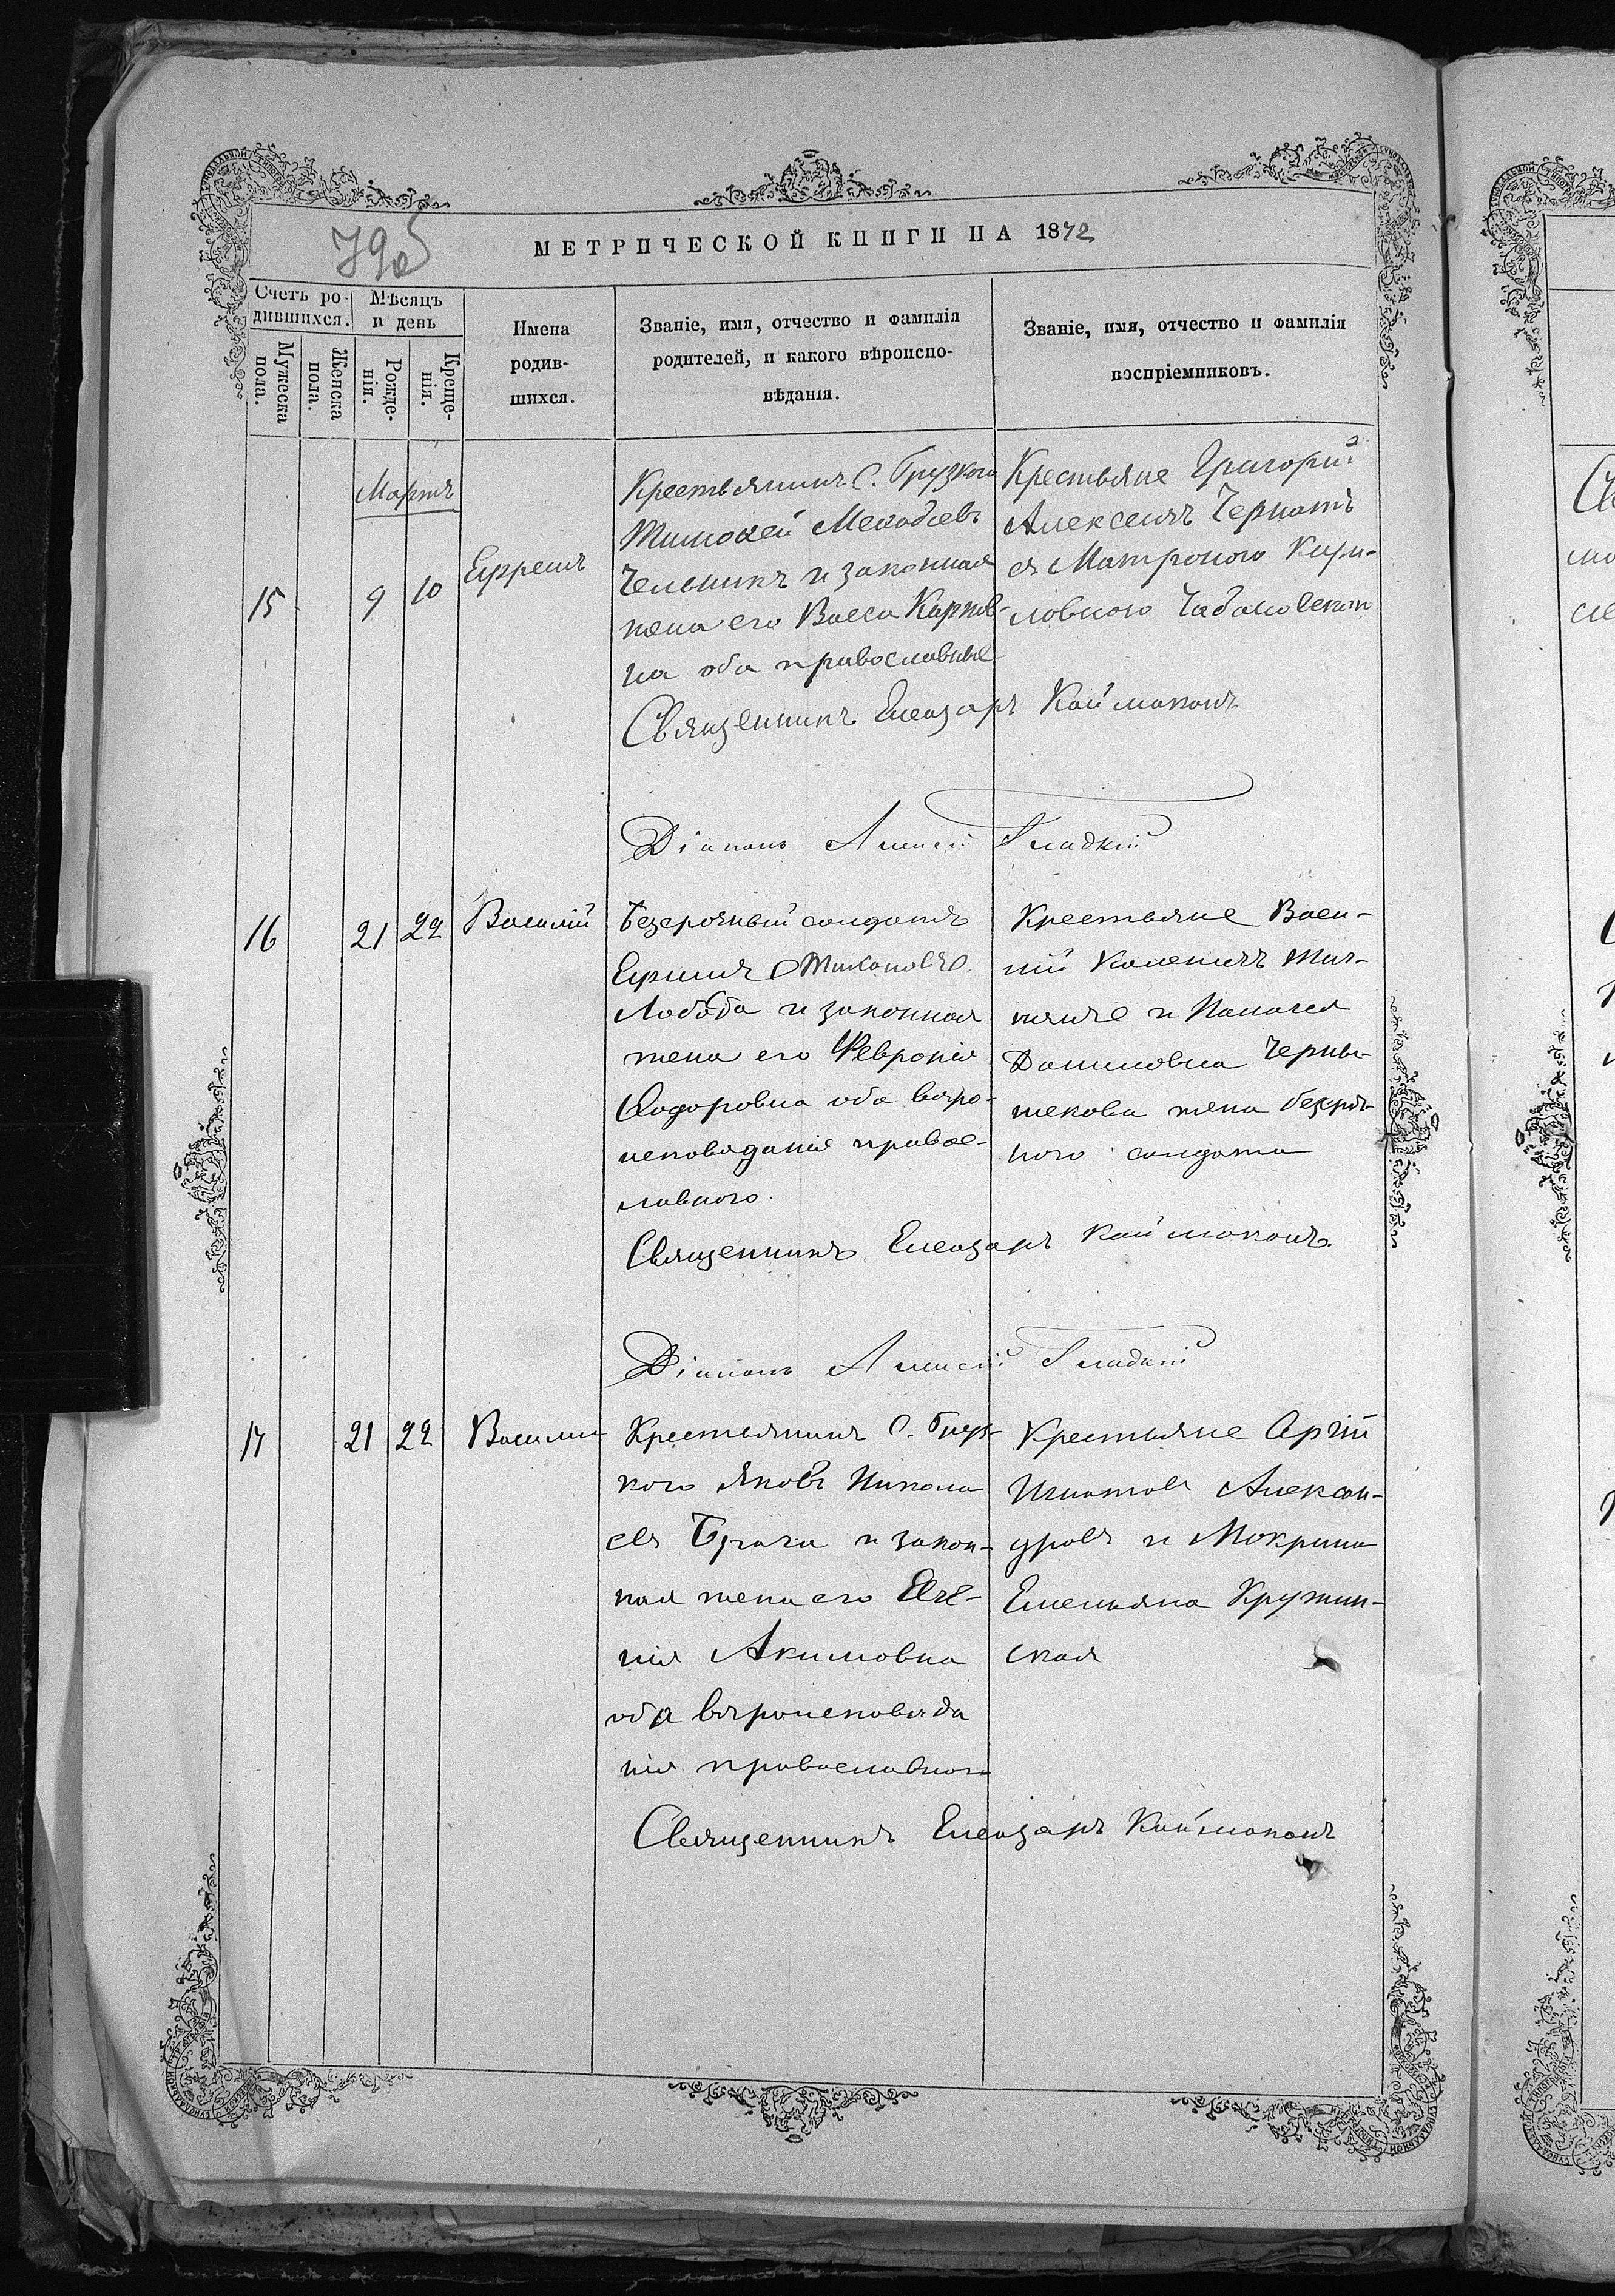 МЕТРИЧЕСКОЙ КНИГИ НА 1872
Счетъ ро-
дившихся.
Мѣсяцъ
и день
Мужеска
пола.
Женска
пола.
Рожде-
нія.
Креще-
нія.
Имена
родив-
шихся.
Званіе, имя, отчество и фамилія
родителей, и какого вѣроиспо-
вѣданія.
Званіе, имя, отчество и фамилія
воспріемниковъ.
Мартъ
15
9
10
Ефремъ
Крестьянинъ С. Грузкого
Тимоѳей Меѳодіевъ
Чельникъ и законная
жена его Васса Карпов-
на оба православные
Крестьяне Григорій
Алексеевъ
съ Матроною Кири-
ловною
Священникъ Елеазаръ Каймаканъ
Діаконъ Алексій Гладкій
16
21
22
Василій
Безсрочный солдатъ
Ефимъ Тихоновъ
Лобода и законная
жена его Февронія
Ѳодоровна оба вѣро-
исповѣданія правос-
лавного.
Крестьяне Васи-
лій
и
Даниловна Черны-
шекова жена безсроч-
ного солдата
Священникъ Елеазаръ Каймаканъ.
Діаконъ Алексій Гладкій
17
21
22
Василий
Крестьянинъ С. Груз-
кого Яковъ Никола
евъ и закон-
ная жена его Евге-
нія Акимовна
оба вѣроисповѣда
нія православного
Крестьяне
Игнатовъ Алексан-
дровъ и Мокрина
Емельяна Кружин-
ская
Священникъ Елеазаръ Каймаканъ